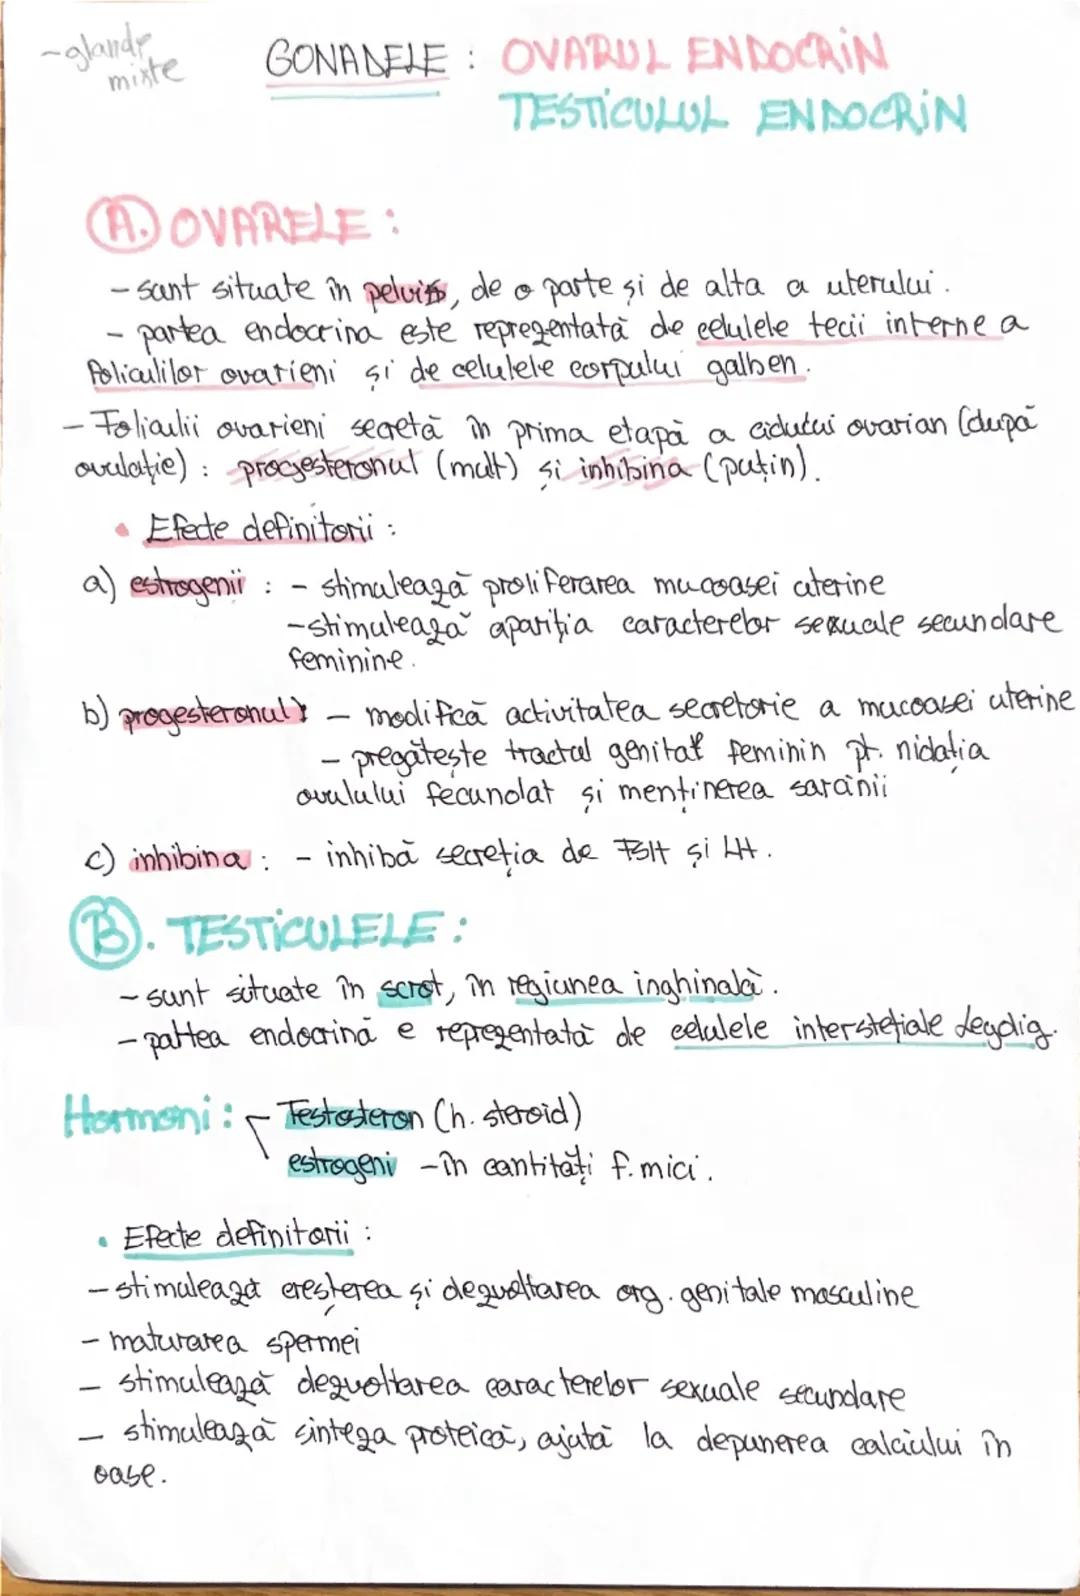 - glande mixte
GONADELE : OVARUL ENDOCRIN
TESTICULUL ENDOCRIN
A. OVARELE :
- sunt situate în pelvis, de o parte și de alta a uterului.
- partea endocrina este reprezentată de celulele tecii interne a
foliculilor ovarieni și de celulele corpului galben.
- Foliculii ovarieni secretă în prima etapă a ciclului ovarian (după
ovulație) : progesteronul (mult) și inhibina (puțin).
• Efecte definitorii :
a) estrogenii : - stimulează proliferarea mucoasei uterine
- stimulează apariția caracterelor sexuale secundare
feminine.
b) progesteronul : - modifică activitatea secretorie a mucoasei uterine
- pregătește tractul genital feminin pt. nidația
ovulului fecundat și menținerea sarcinii
c) inhibina : - inhibă secreția de FSH și LH.
B. TESTICULELE :
- sunt situate în scrot, în regiunea inghinală.
- partea endocrină e reprezentată de celulele interstețiale Leydig.
Hormoni : Testosteron (h. steroid)
estrogeni - în cantități f. mici.
• Efecte definitorii :
- stimulează creșterea și dezvoltarea org. genitale masculine
- maturarea spermei
- stimulează dezvoltarea caracterelor sexuale secundare
- stimulează sinteza proteică, ajută la depunerea calciului în
oase.